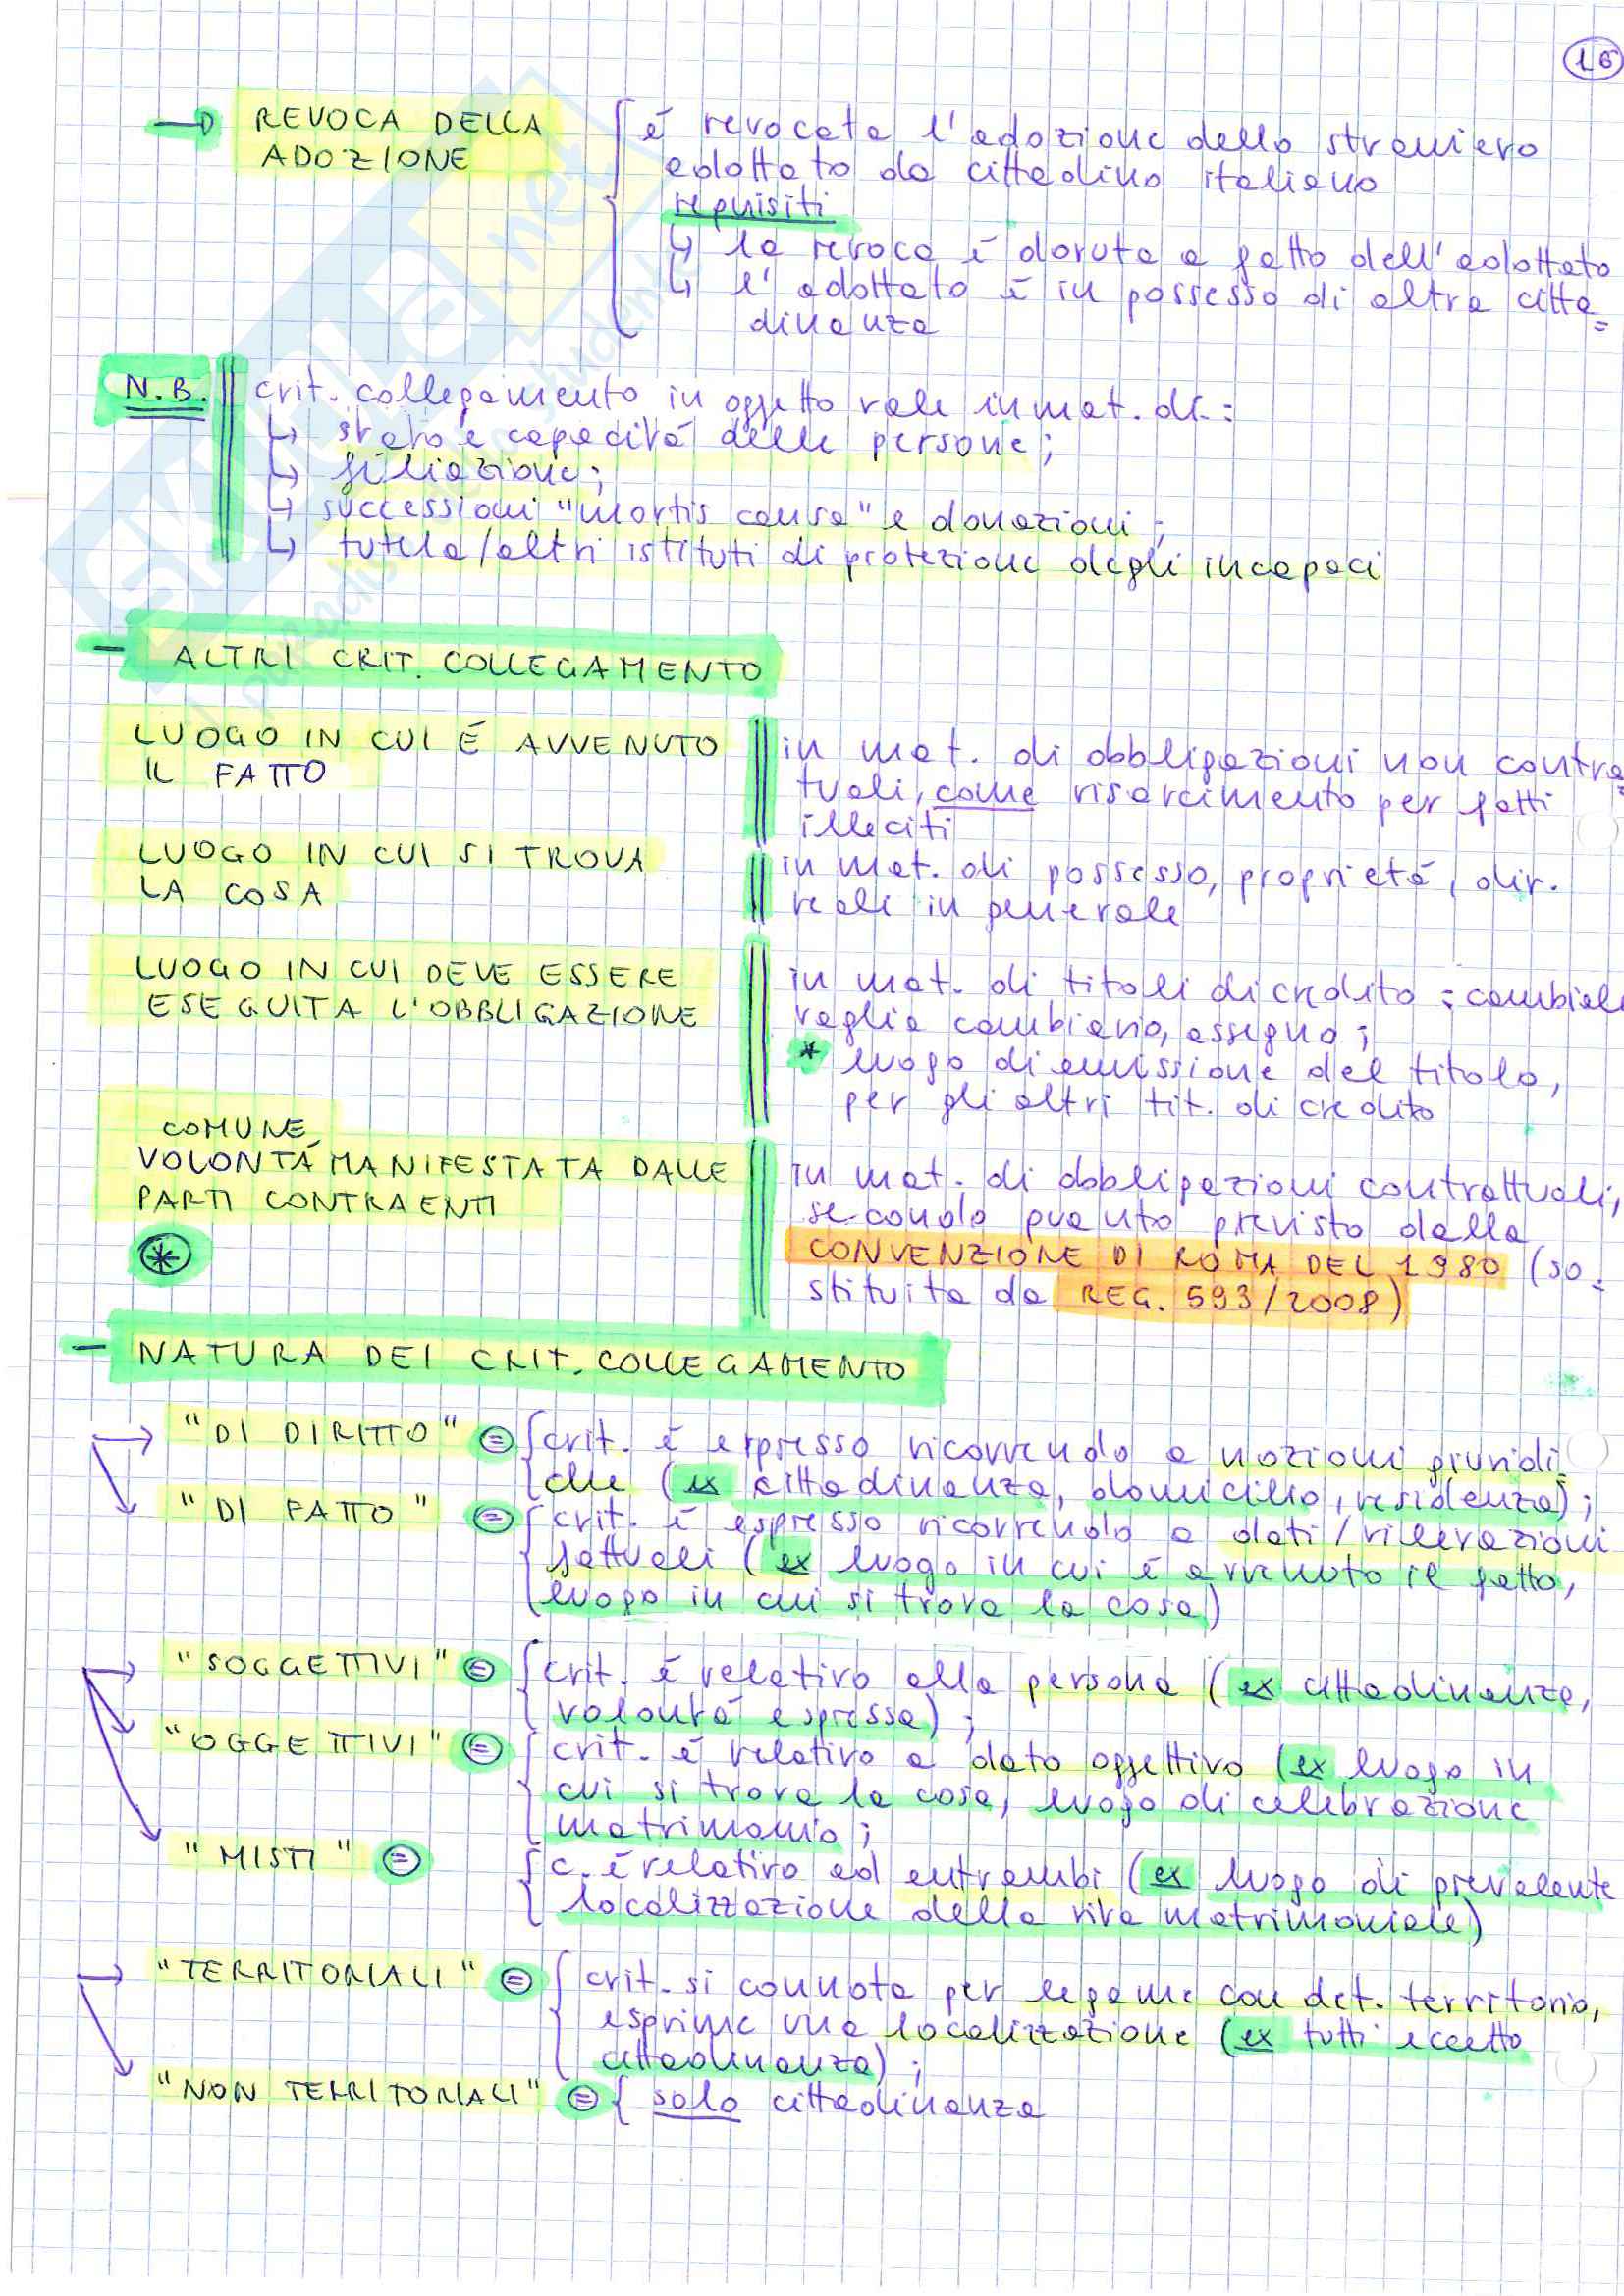 16
→ REVOCA DELLA
ADOZIONE
é revocata l'adozione dello straniero
adottato da cittadino italiano
requisiti
↳ la revoca é dovuta a fatto dell'adottato
↳ l'adottato é in possesso di altra citta=
dinanza
N.B.
crit. collegamento in oggetto vale in mat. di:
↳ stato e capacitá delle persone;
↳ filiazione;
↳ successioni "mortis causa" e donazioni;
↳ tutela/altri istituti di protezione degli incapaci
- ALTRI CRIT. COLLEGAMENTO
LUOGO IN CUI É AVVENUTO
IL FATTO
in mat. di obbligazioni non contra=
tuali, come risarcimento per fatti
illeciti
LUOGO IN CUI SI TROVA
LA COSA
in mat. di possesso, proprietá, dir.
reali in generale
LUOGO IN CUI DEVE ESSERE
ESEGUITA L'OBBLIGAZIONE
in mat. di titoli di credito: cambiale
vaglia cambiario, assegno;
* luogo di emissione del titolo,
per gli altri tit. di credito
COMUNE
VOLONTÁ MANIFESTATA DALLE
PARTI CONTRAENTI
*
in mat. di obbligazioni contrattuali,
secondo quanto previsto dalla
CONVENZIONE DI ROMA DEL 1980 (so=
stituita da REG. 593/2008)
- NATURA DEI CRIT. COLLEGAMENTO
→ "DI DIRITTO" = crit. é espresso ricorrendo a nozioni giuridi=
che (ex cittadinanza, domicilio, residenza);
"DI FATTO" = crit. é espresso ricorrendo a dati/rilevazioni
fattuali (ex luogo in cui é avvenuto il fatto,
luogo in cui si trova la cosa)
→ "SOGGETTIVI" = crit. é relativo alla persona (ex cittadinanza,
volontá espressa);
"OGGETTIVI" = crit. é relativo a dato oggettivo (ex luogo in
cui si trova la cosa, luogo di celebrazione
matrimonio;
"MISTI" = c. é relativo ad entrambi (ex luogo di prevalente
localizzazione della vita matrimoniale)
→ "TERRITORIALI" = crit. si connota per legame con det. territorio,
esprime una localizzazione (ex tutti eccetto
cittadinanza);
"NON TERRITORIALI" = solo cittadinanza